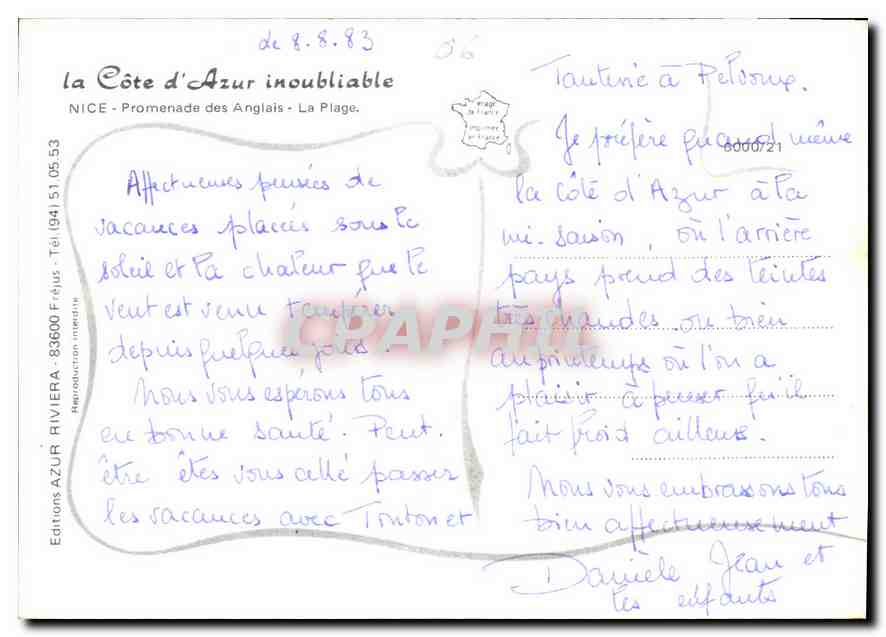 de 8.8.83
06
la Côte d'Azur inoubliable
NICE - Promenade des Anglais - La Plage.
image de France
imprimée en France
6000/21
Editions AZUR RIVIERA - 83600 Fréjus - Tél. (94) 51.05.53
Reproduction interdite
Affectueuses pensées de
vacances placées sous le
soleil et la chaleur que le
vent est venu tempérer
depuis quelques jours.
Nous vous espérons tous
en bonne santé. Peut.
être êtes vous allé passer
les vacances avec Tonton et
Tantine à Pelvoux.
Je préfère quand même
la côte d'Azur à la
mi-saison, où l'arrière
pays prend des teintes
très chaudes ou bien
au printemps où l'on a
plaisir à penser qu'il
fait froid ailleurs.
Nous vous embrassons tous
bien affectueusement
Danièle Jean et
les enfants
CPAPHIL